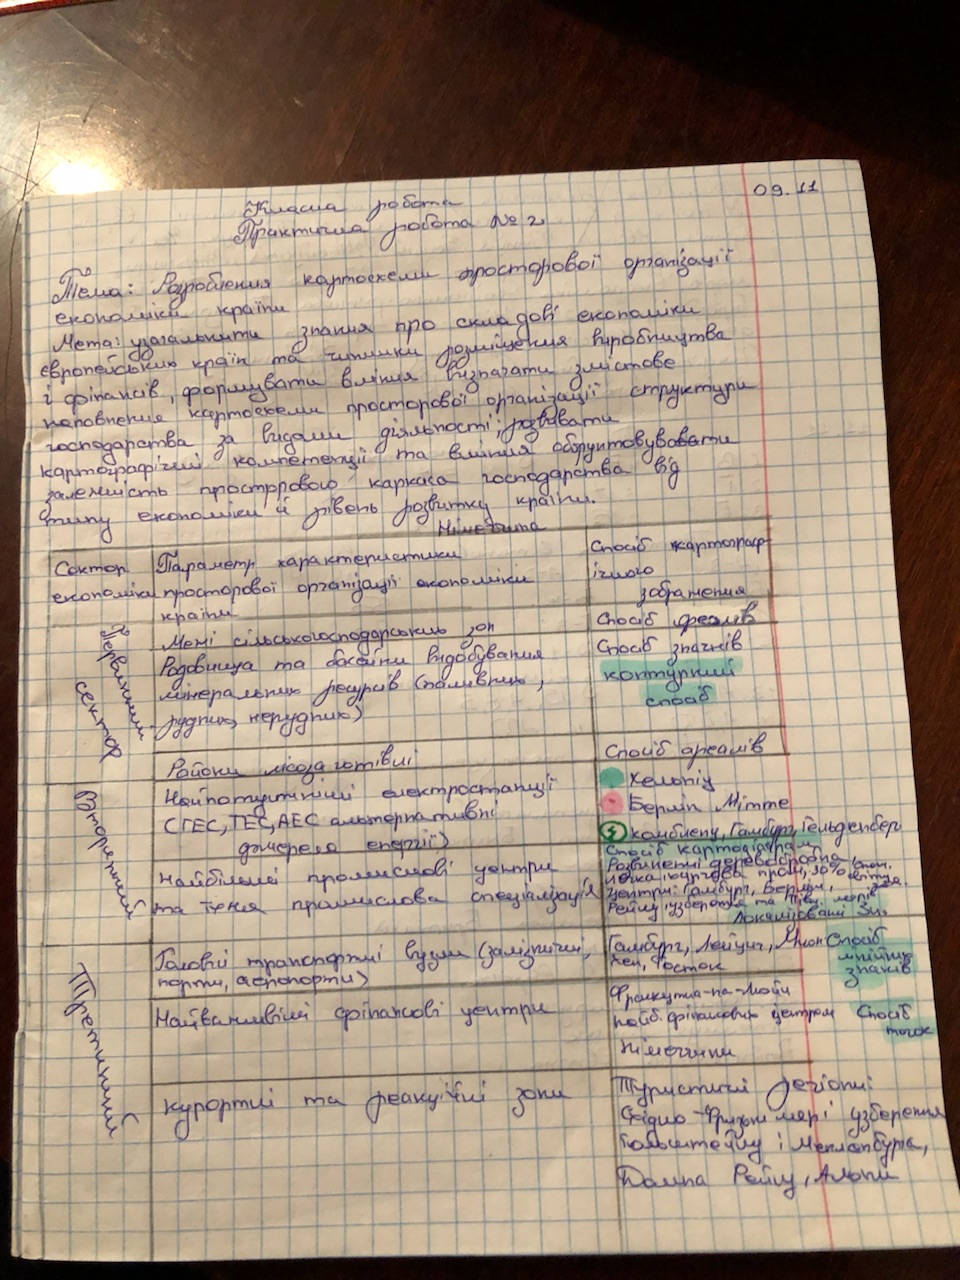 09.11
Класна робота
Практична робота № 2
Тема: Розроблення картосхеми просторової організації
економіки країни
Мета: узагальнити знання про складові економіки
європейських країн та чинники розміщення виробництва
і фінансів, формувати вміння визначати змістове
наповнення картосхеми просторової організації структури
господарства за видами діяльності; розвивати
картографічні компетенції та вміння обґрунтовувати
залежність просторового каркаса господарства від
типу економіки й рівень розвитку країни.
Німеччина
Сектор економіки
Параметр характеристики
просторової організації економіки
країни
Спосіб картограф-
ічного
зображення
Первинний
сектор
Межі сільськогосподарських зон
Спосіб ареалів
Родовища та басейни видобування
мінеральних ресурсів (паливних,
рудних, нерудних)
Спосіб значків
контурний
спосіб
Райони лісозаготівлі
Спосіб ареалів
Вторинний
Найпотужніші електростанції
(ГЕС, ТЕС, АЕС альтернативні
джерела енергії)
Хельпіц
Берлін Мітте
Гамбург,
Спосіб картодіаграм
Найбільші промислові центри
та їхня промислова спеціалізація
Розвинені деревообробна
30%
центри: Гамбург, Берлін,
Рейну, узбережжя та Півн. моря
Локалізовані Зн.
Третинний
Головні транспортні вузли (залізничні,
порти, аеропорти)
Гамбург, Лейпциг, Мюнхен, Росток
Спосіб
лінійних
знаків
Найважливіші фінансові центри
Франкфурт-на-Майні
найб. фінансовим центром
Німеччини
Спосіб
точок
курортні та рекаційні зони
Туристичні регіони:
Східно-Фризькі узбережжя
Гольштейну і Мекленбурга,
Долина Рейну, Альпи